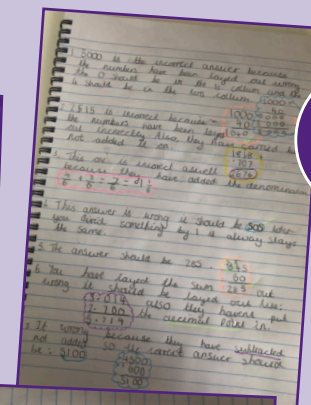 1. 5000 is the incorrect answer because
the numbers have been layed out wrong
the 0 should be in the 10s column and the
4 should be in the 100s column.
2. 1515 is incorrect because
the numbers have been layed
out incorrectly. Also, they have carried but
not added it on.
1518
3. This one is incorrect aswell
because they have added the denominator
4. This answer is wrong it should be 305 when
you divide something by 1 it always stays
the same.
5. The answer should be 285.
345
60
285
6. You have layed the sum out
wrong it should be layed out like:
3.014 also they havent put
2.700 the decimal point in.
5.714
7. It wrong because they have subtracted
not added so the correct answer should
be: 5100
4300
800
5100